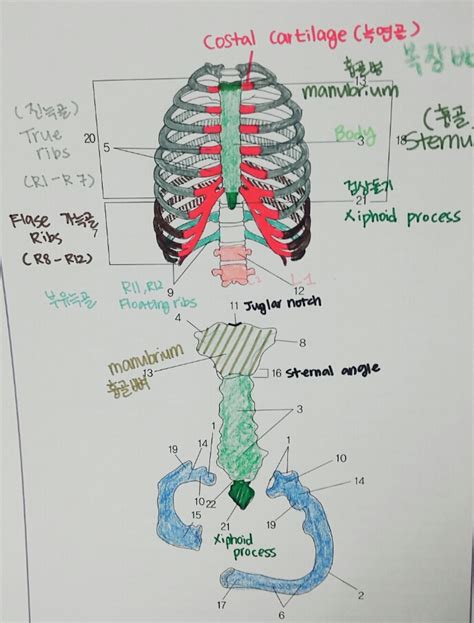 costal cartilage (늑연골)
흉골병
13
manubrium
복장뼈
(진늑골)
True
ribs
(R1-R7)
20
5
Body
3
18
(흉골)
Sternu
21
검상돌기
Xiphoid process
Flase 가늑골
Ribs
(R8-R12)
7
부유늑골
9
R11, R12
Floating ribs
L1
12
11 Juglar notch
4
8
manubrium
13
흉골병
16 sternal angle
3
1
19
14
10
22
15
21
xiphoid
process
1
10
14
19
2
17
6